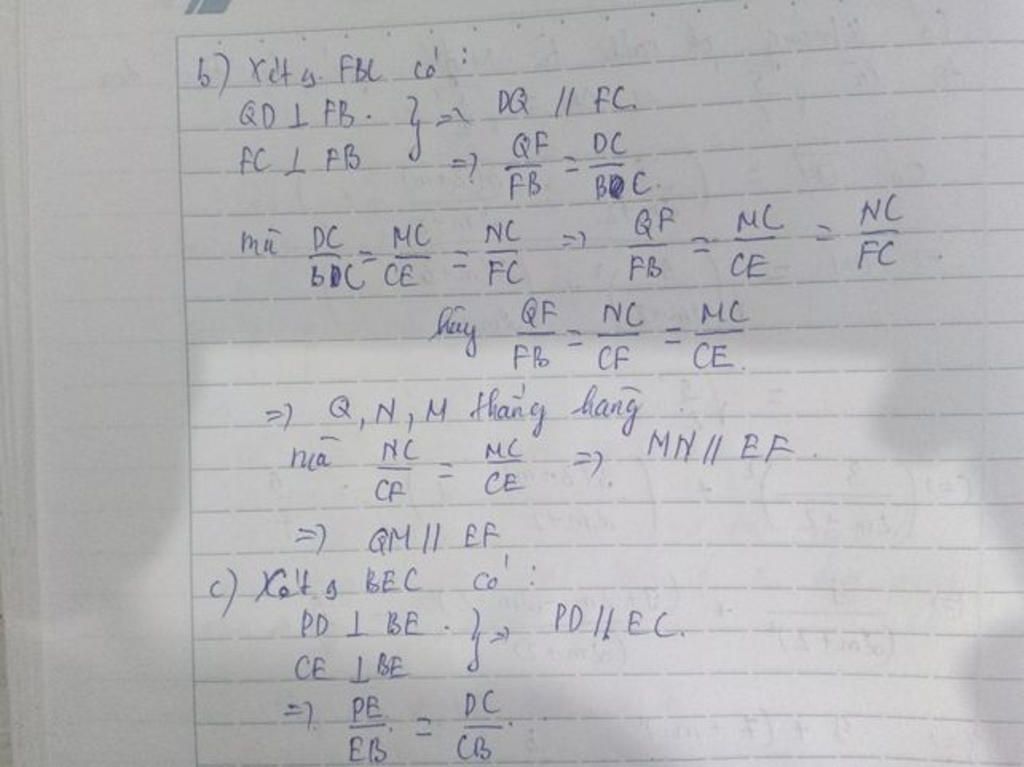 b) Xét △ FBC có:
QD ⊥ FB. } => DQ // FC.
FC ⊥ FB => QF/FB = DC/BC.
mà DC/BC = MC/CE = NC/FC => QF/FB = MC/CE = NC/FC.
hay QF/FB = NC/CF = MC/CE.
=> Q, N, M thẳng hàng.
mà NC/CF = MC/CE => MN // EF.
=> QM // EF
c) Xét △ BEC có:
PD ⊥ BE. } => PD // EC.
CE ⊥ BE
=> PE/EB = DC/CB.